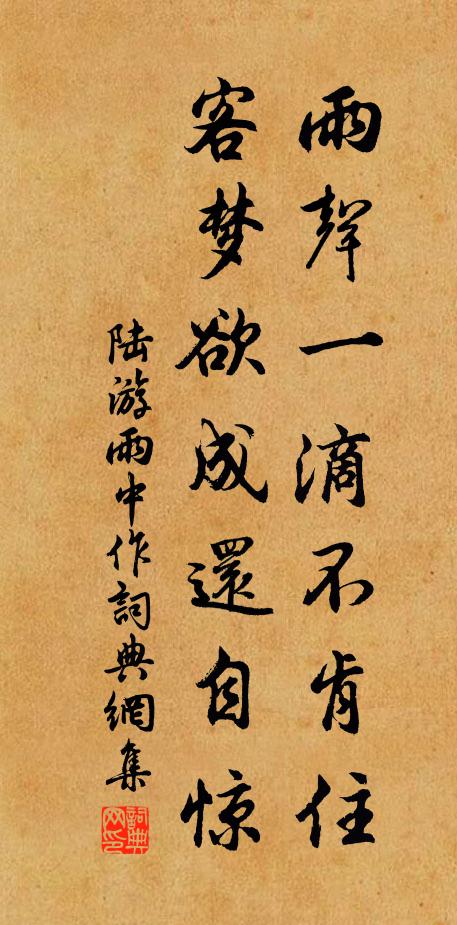 雨聲一滴不肯住
客梦欲成還自惊
陆游雨中作詞典網集
詞典网印